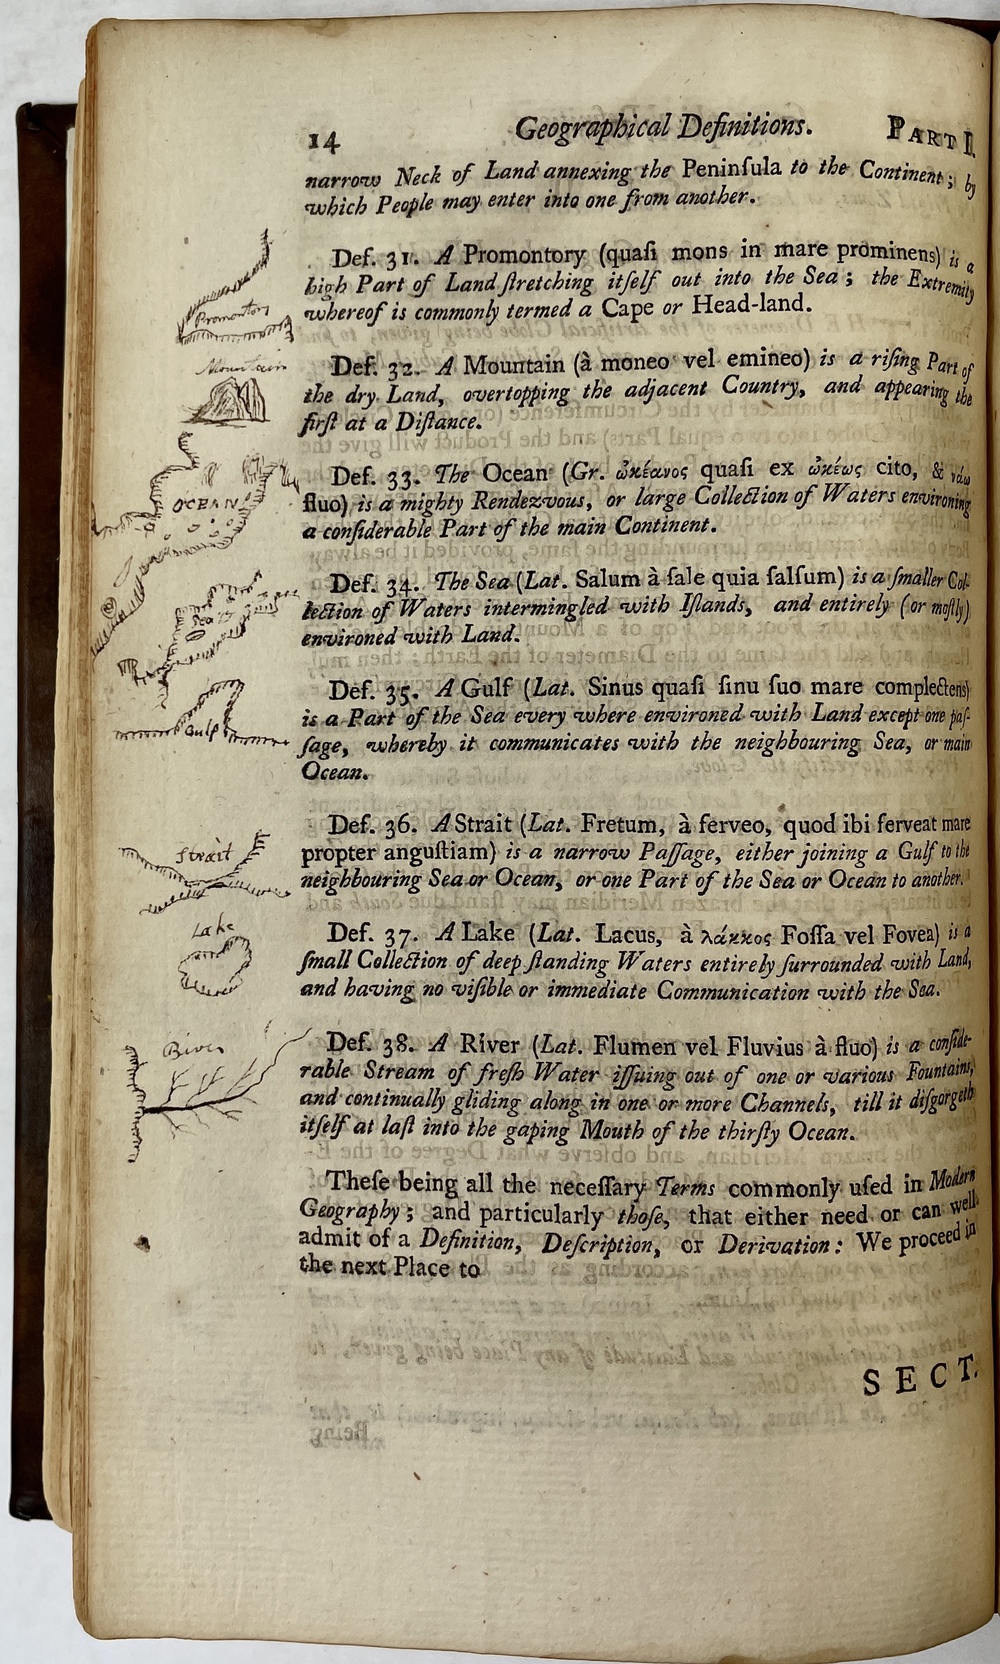 14 Geographical Definitions. PART I.
narrow Neck of Land annexing the Peninſula to the Continent; by
which People may enter into one from another.
Def. 31. A Promontory (quaſi mons in mare prominens) is a
high Part of Land ſtretching itſelf out into the Sea; the Extremity
whereof is commonly termed a Cape or Head-land.
Promontory
Mountain
Def. 32. A Mountain (à moneo vel emineo) is a riſing Part of
the dry Land, overtopping the adjacent Country, and appearing the
firſt at a Diſtance.
Def. 33. The Ocean (Gr. ὠκέανος quaſi ex ὠκέως cito, & νάω
fluo) is a mighty Rendezvous, or large Collection of Waters environing
a conſiderable Part of the main Continent.
OCEAN
Def. 34. The Sea (Lat. Salum à ſale quia ſalſum) is a ſmaller Col-
lection of Waters intermingled with Iſlands, and entirely (or moſtly)
environed with Land.
Sea
Def. 35. A Gulf (Lat. Sinus quaſi ſinu ſuo mare complectens)
is a Part of the Sea every where environed with Land except one paſ-
ſage, whereby it communicates with the neighbouring Sea, or main
Ocean.
Gulph
Def. 36. A Strait (Lat. Fretum, à ferveo, quod ibi ferveat mare
propter anguſtiam) is a narrow Paſſage, either joining a Gulf to the
neighbouring Sea or Ocean, or one Part of the Sea or Ocean to another.
Strait
Def. 37. A Lake (Lat. Lacus, à λάκκος Foſſa vel Fovea) is a
ſmall Collection of deep ſtanding Waters entirely ſurrounded with Land,
and having no viſible or immediate Communication with the Sea.
Lake
Def. 38. A River (Lat. Flumen vel Fluvius à fluo) is a conſide-
rable Stream of freſh Water iſſuing out of one or various Fountains,
and continually gliding along in one or more Channels, till it diſgorgeth
itſelf at laſt into the gaping Mouth of the thirſty Ocean.
River
Theſe being all the neceſſary Terms commonly uſed in Modern
Geography; and particularly thoſe, that either need or can well
admit of a Definition, Deſcription, or Derivation: We proceed in
the next Place to
SECT.